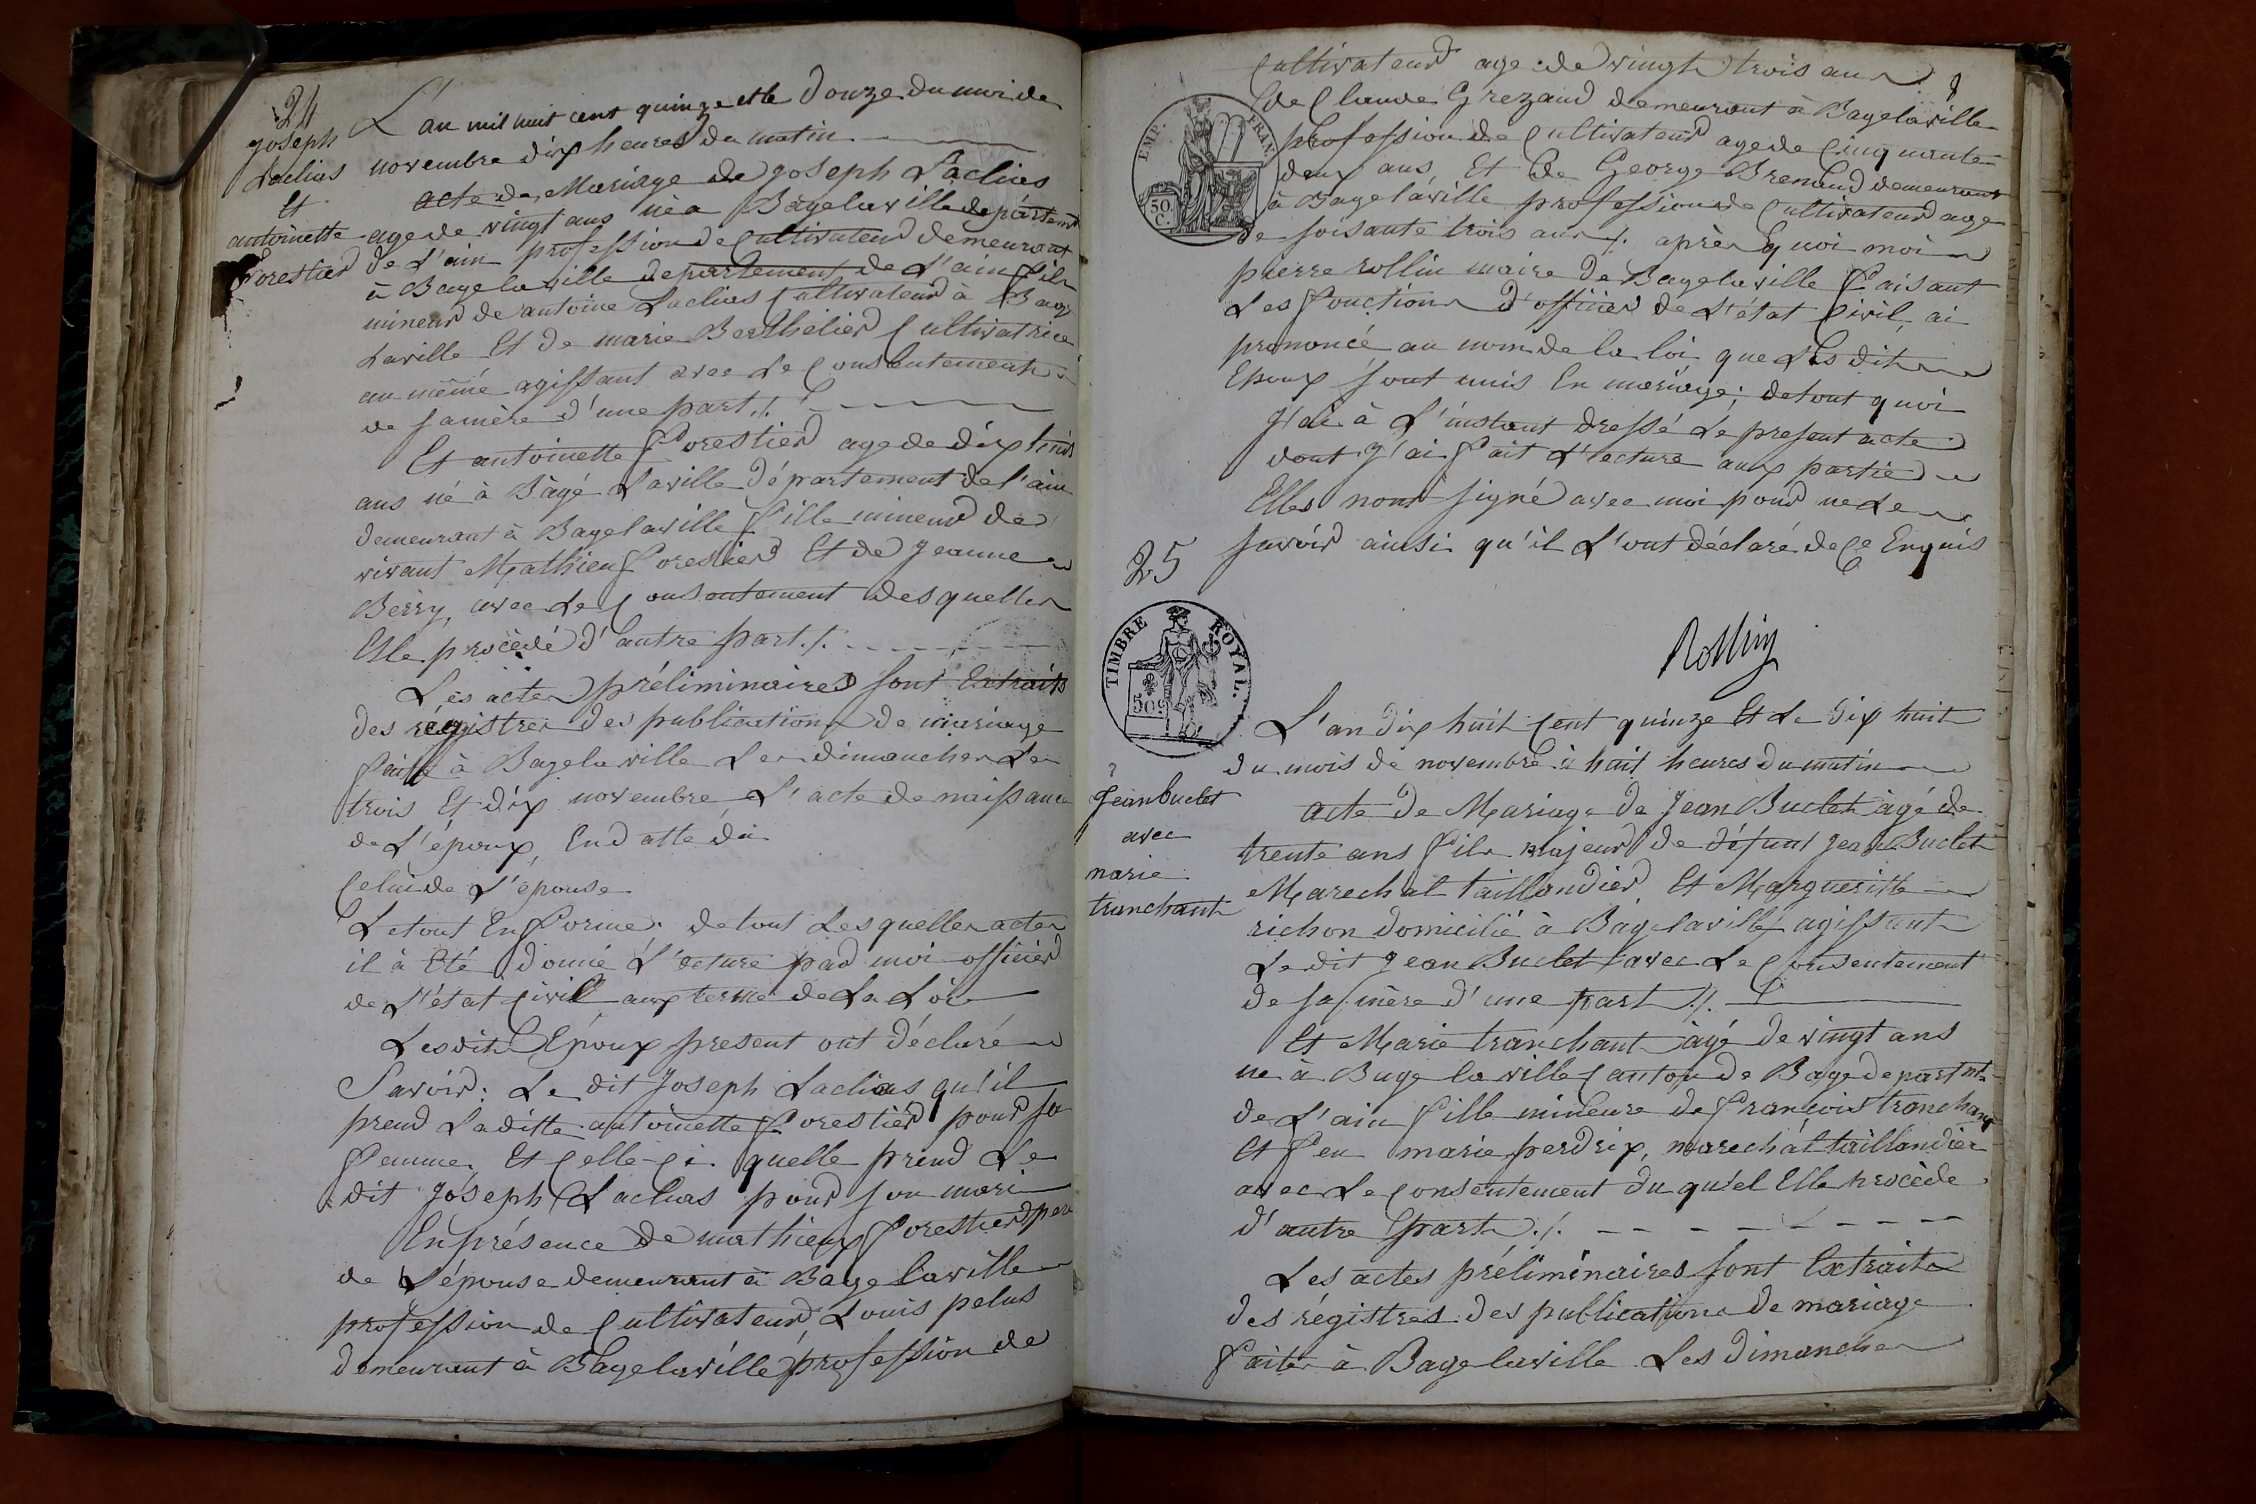 24
Joseph
Laclias
Et
antoinette
Forestier
L'an mil huit cent quinze et le Douze du moi de
novembre dix heures du matin
acte de Mariage de joseph Laclias
age de vingt ans né a Bagelaville departemt
de L'ain profession de Cultivateur demeurant
à Bagelaville departement de L'ain fils
mineur de antoine Laclias Cultivateur à Bagé
Laville Et de marie Berthelier Cultivatrice
au même agissant avec Le Consentement
de sa mère d'une part ./.
Et antoinette Forestier age de dix huis
ans né à Bàgé Laville Département de l'ain
demeurant à Bagelaville fille mineur de
vivant Mathieu Forestier Et de Jeanne
Berry, avec Le Consentement desquelles
Elle procèdé d'autre part ./.
Les actes préliminaires sont Extraits
des régistres des publications de mariage
faite à Bagelaville Les dimanches Les
trois Et dix novembre L'acte de naissance
de L'époux, En datte du
Celui de L'épouse
Le tout En forme. de tout Lesquelles actes
il à Eté donné L'ecture par moi officier
de L'état Civil aux terme de La Loi
Lesdits Epoux present ont déclaré
Savoir: Le dit Joseph Laclias qu'il
prend Laditte antoinette Forestier pour sa
femme, Et Celle Ci quelle prend Le
dit Joseph Laclias pour son mari
En présence de mathieux Forestier pere
de L'épouse demeurant à Bage laville
profession de Cultivateur, Louis pelus
demeurant à Bagelaville, profession de
Cultivateur age de vingt trois ans
de Claude Grezaud demeurant à Bagelaville
profession de Cultivateur age de Cinquante
deux ans, Et de George Brenaud demeurant
à Bagelaville profession de Cultivateur age
de soisante trois ans ./. après quoi moi
pierre rollin maire de Bagelaville faisant
Les fonctions d'officier de L'état Civil, ai
prononcé au nom de la loi que Les dits
Epoux sont unis En mariage; de tout quoi
J'ai à L'instant dressé Le present acte
dont J'ai fait L'ecture aux parties
Elles nont signé avec moi pour ne Le
savoir ainsi qu'il L'ont déclaré de Ce Enquis
Rollin
EMP. FRAN.
50
C.
TIMBRE ROYAL.
50c
25
Jean buclet
avec
marie
tranchant
L'an dix huit Cent quinze Et Le dix huit
du mois de novembre à huit heures du matin
acte De Mariage de Jean Buclet àgé de
trente ans fils majeur de défunt Jean Buclet
Marechal taillandier Et Margueritte
richon domicilié à Bàgelaville, agissant
Le dit Jean Buclet avec Le Consentement
de sa mère d'une part ./.
Et Marie tranchant àgé de vingt ans
né à Bage laville Canton de Bage departmt
de L'ain fille mineure de françois tranchant
Et feu marie perdrix, marechàl taillandier
avec Le Consentement du qu'el Elle procède
d'autre part ./.
Les actes préliminaires sont Extraits
des régistres des publications de mariage
faites à Bagelaville Les dimanches